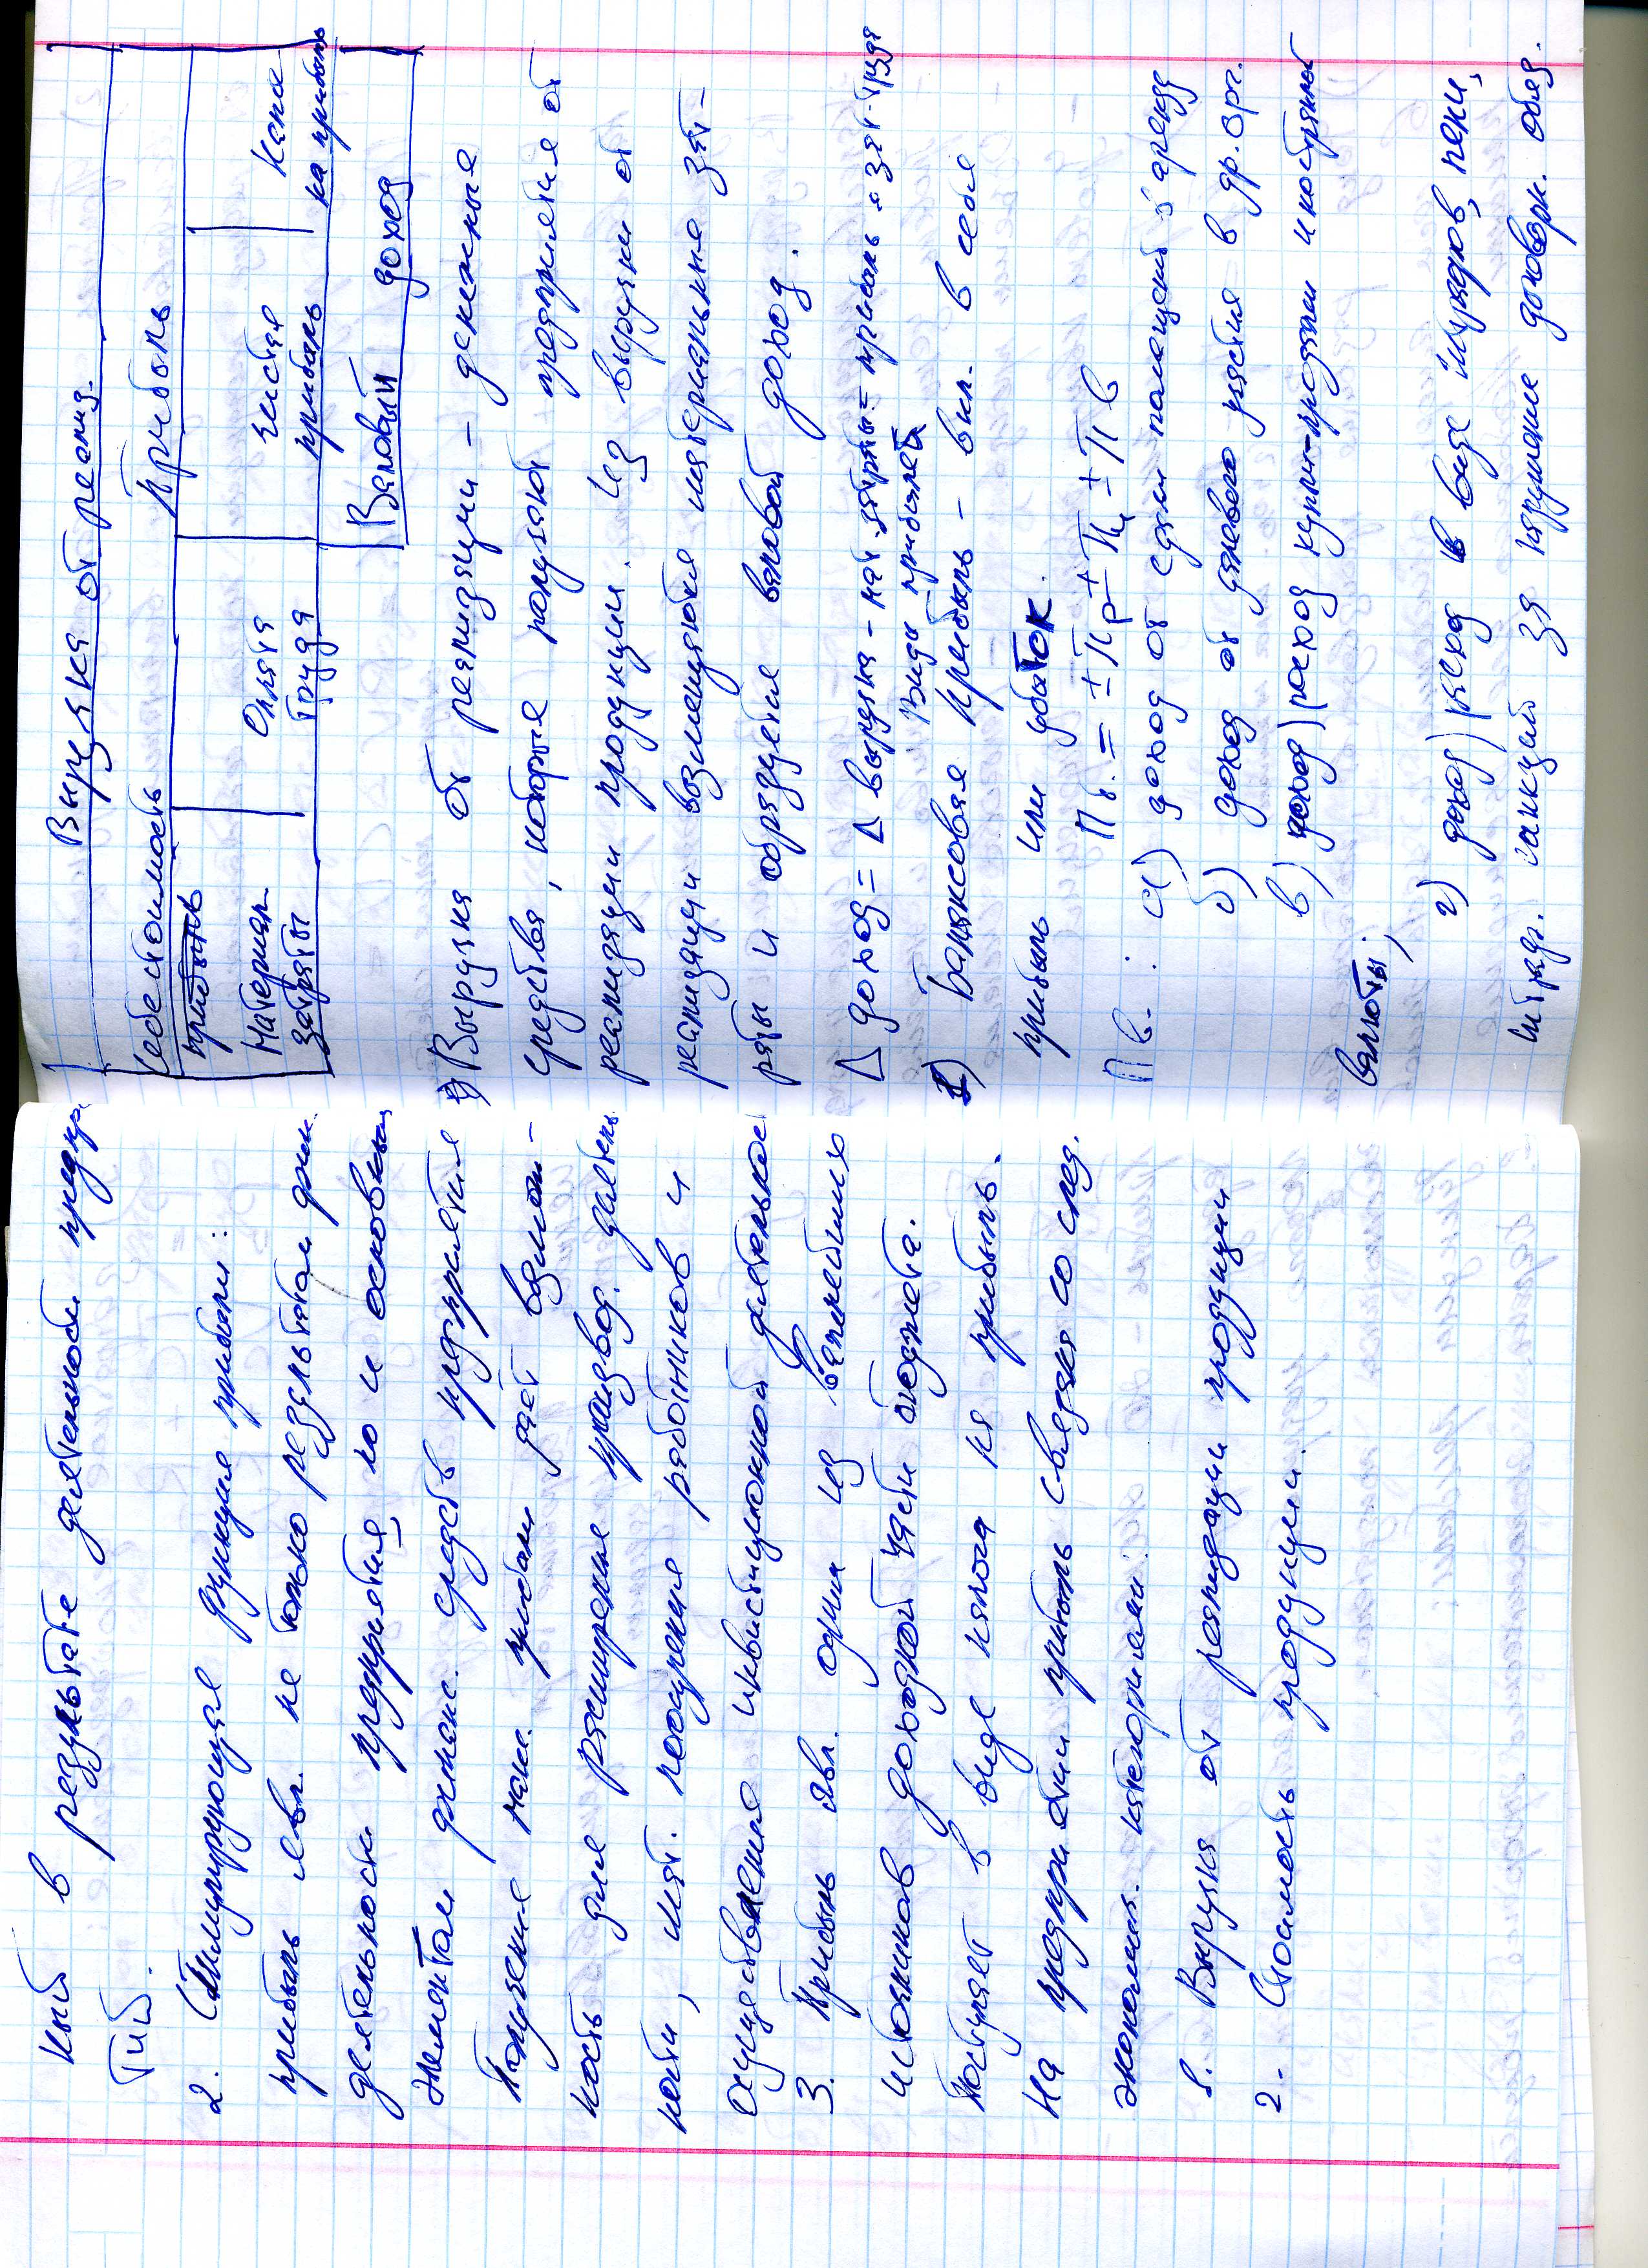 ный в результате деятельности предпр
тий.
2. Стимулирующая функция прибыли:
прибыль явл. не только результатом фин.
деятельности предприятия, но и основным
элементом финанс. средств предприятия
Получение макс. прибыли даёт возмож-
ность для расширения производ. деятель
ности, мат. поощрения работников и
осуществления инвистиционной деятельнос
3. Прибыль явл. один из важнейших
источников доходной части бюджета.
Поступает в виде налога на прибыль.
На предприятии прибыль связана со след.
экономич. категориями:
1. Выручка от реализации продукции
2. Стоимость продукции.
Выручка от реализ.
Себестоимость Прибыль
прибыль
Материал. затраты Оплата труда чистая прибыль Налог на прибыль
Валовый доход
Выручка от реализации - денежные
средства, которые получают предприятия от
реализации продукции. Из выручки от
реализации возмещаются материальные зат-
раты и образуется валовой доход.
Δ доход = Δ выручка - мат. затраты = прибыль + зат. труда
Виды прибылей
1) Балансовая прибыль - вкл. в себя
прибыль или убыток.
П б. = ± Пр ± Пи ± П в
П в. : а) доход от сдачи помещений в аренду
б) доход от долевого участия в др. орг.
в) доход/расход купли-продажи иностранной
валюты;
г) доход/расход в виде штрафов, пени,
штраф. санкций за нарушение договорн. обяз.